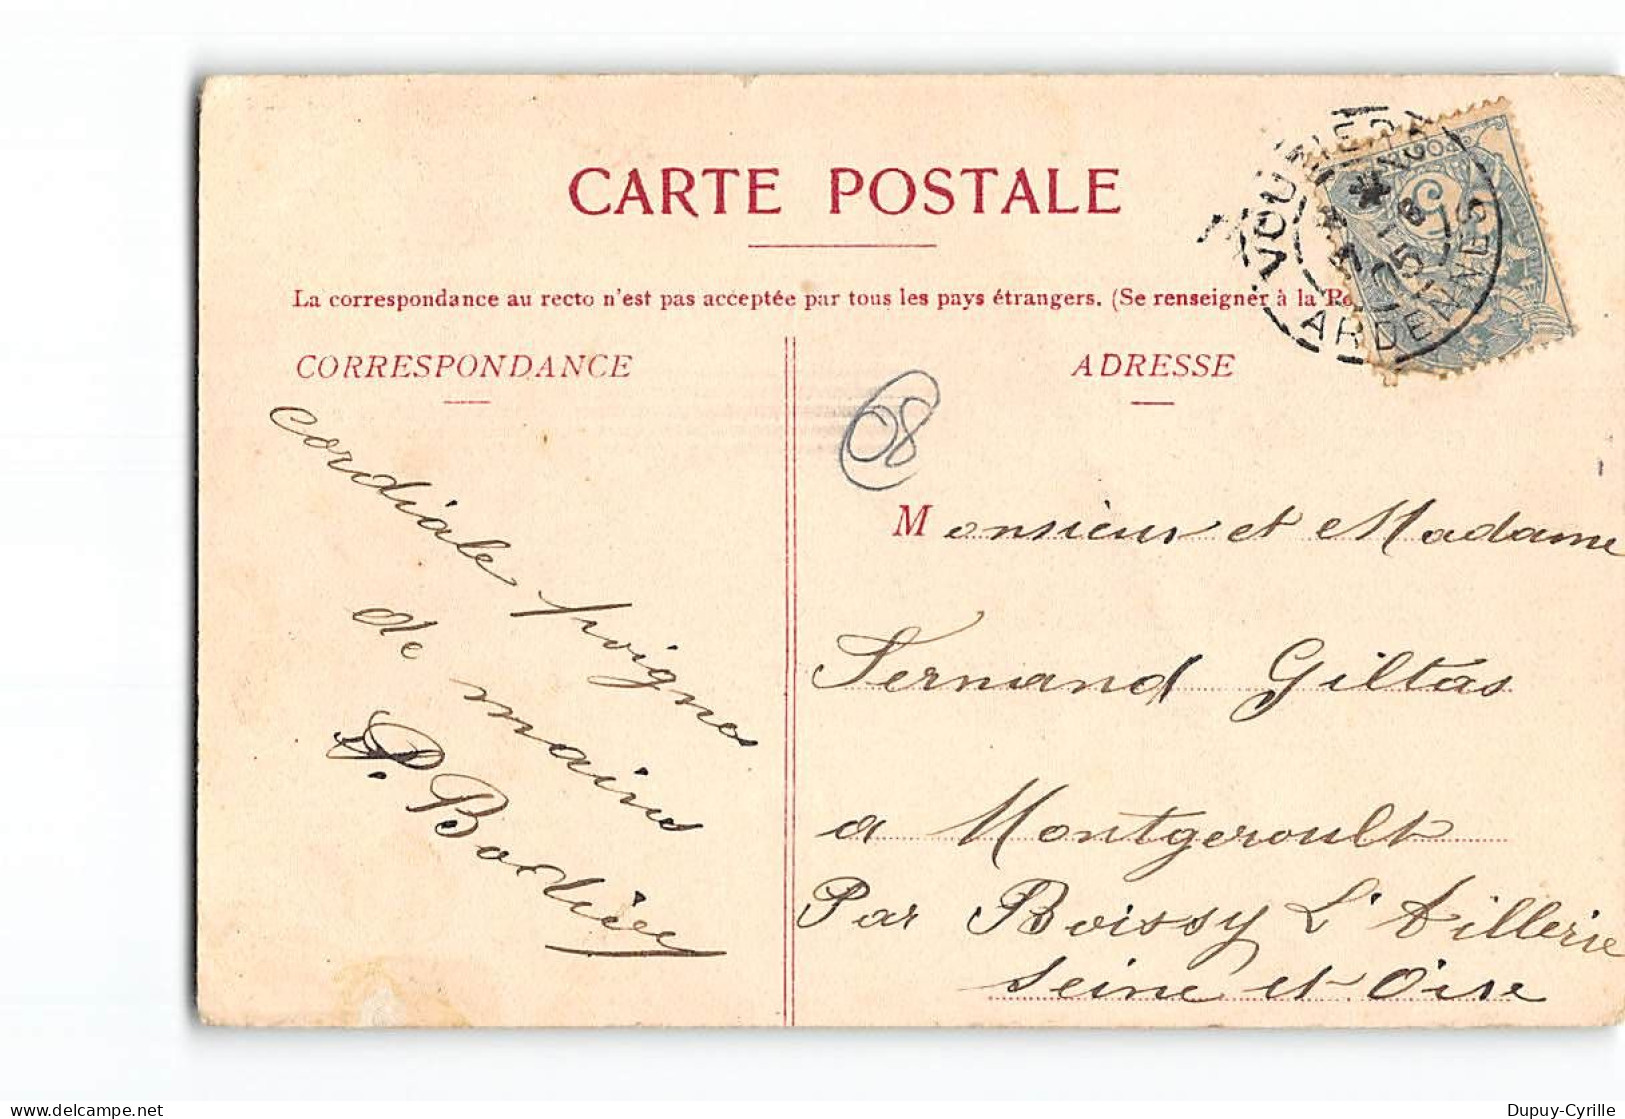 CARTE POSTALE
La correspondance au recto n'est pas acceptée par tous les pays étrangers. (Se renseigner à la Po
CORRESPONDANCE
ADRESSE
VOUZIERS
ARDENNES
5
08
cordiale poignes
de maines
P. Bodier
Monsieur et Madame
Fernand Giltas
a Montgeroult
Par Boissy L'Aillerie
Seine et Oise
delcampe.net
Dupuy-Cyrille